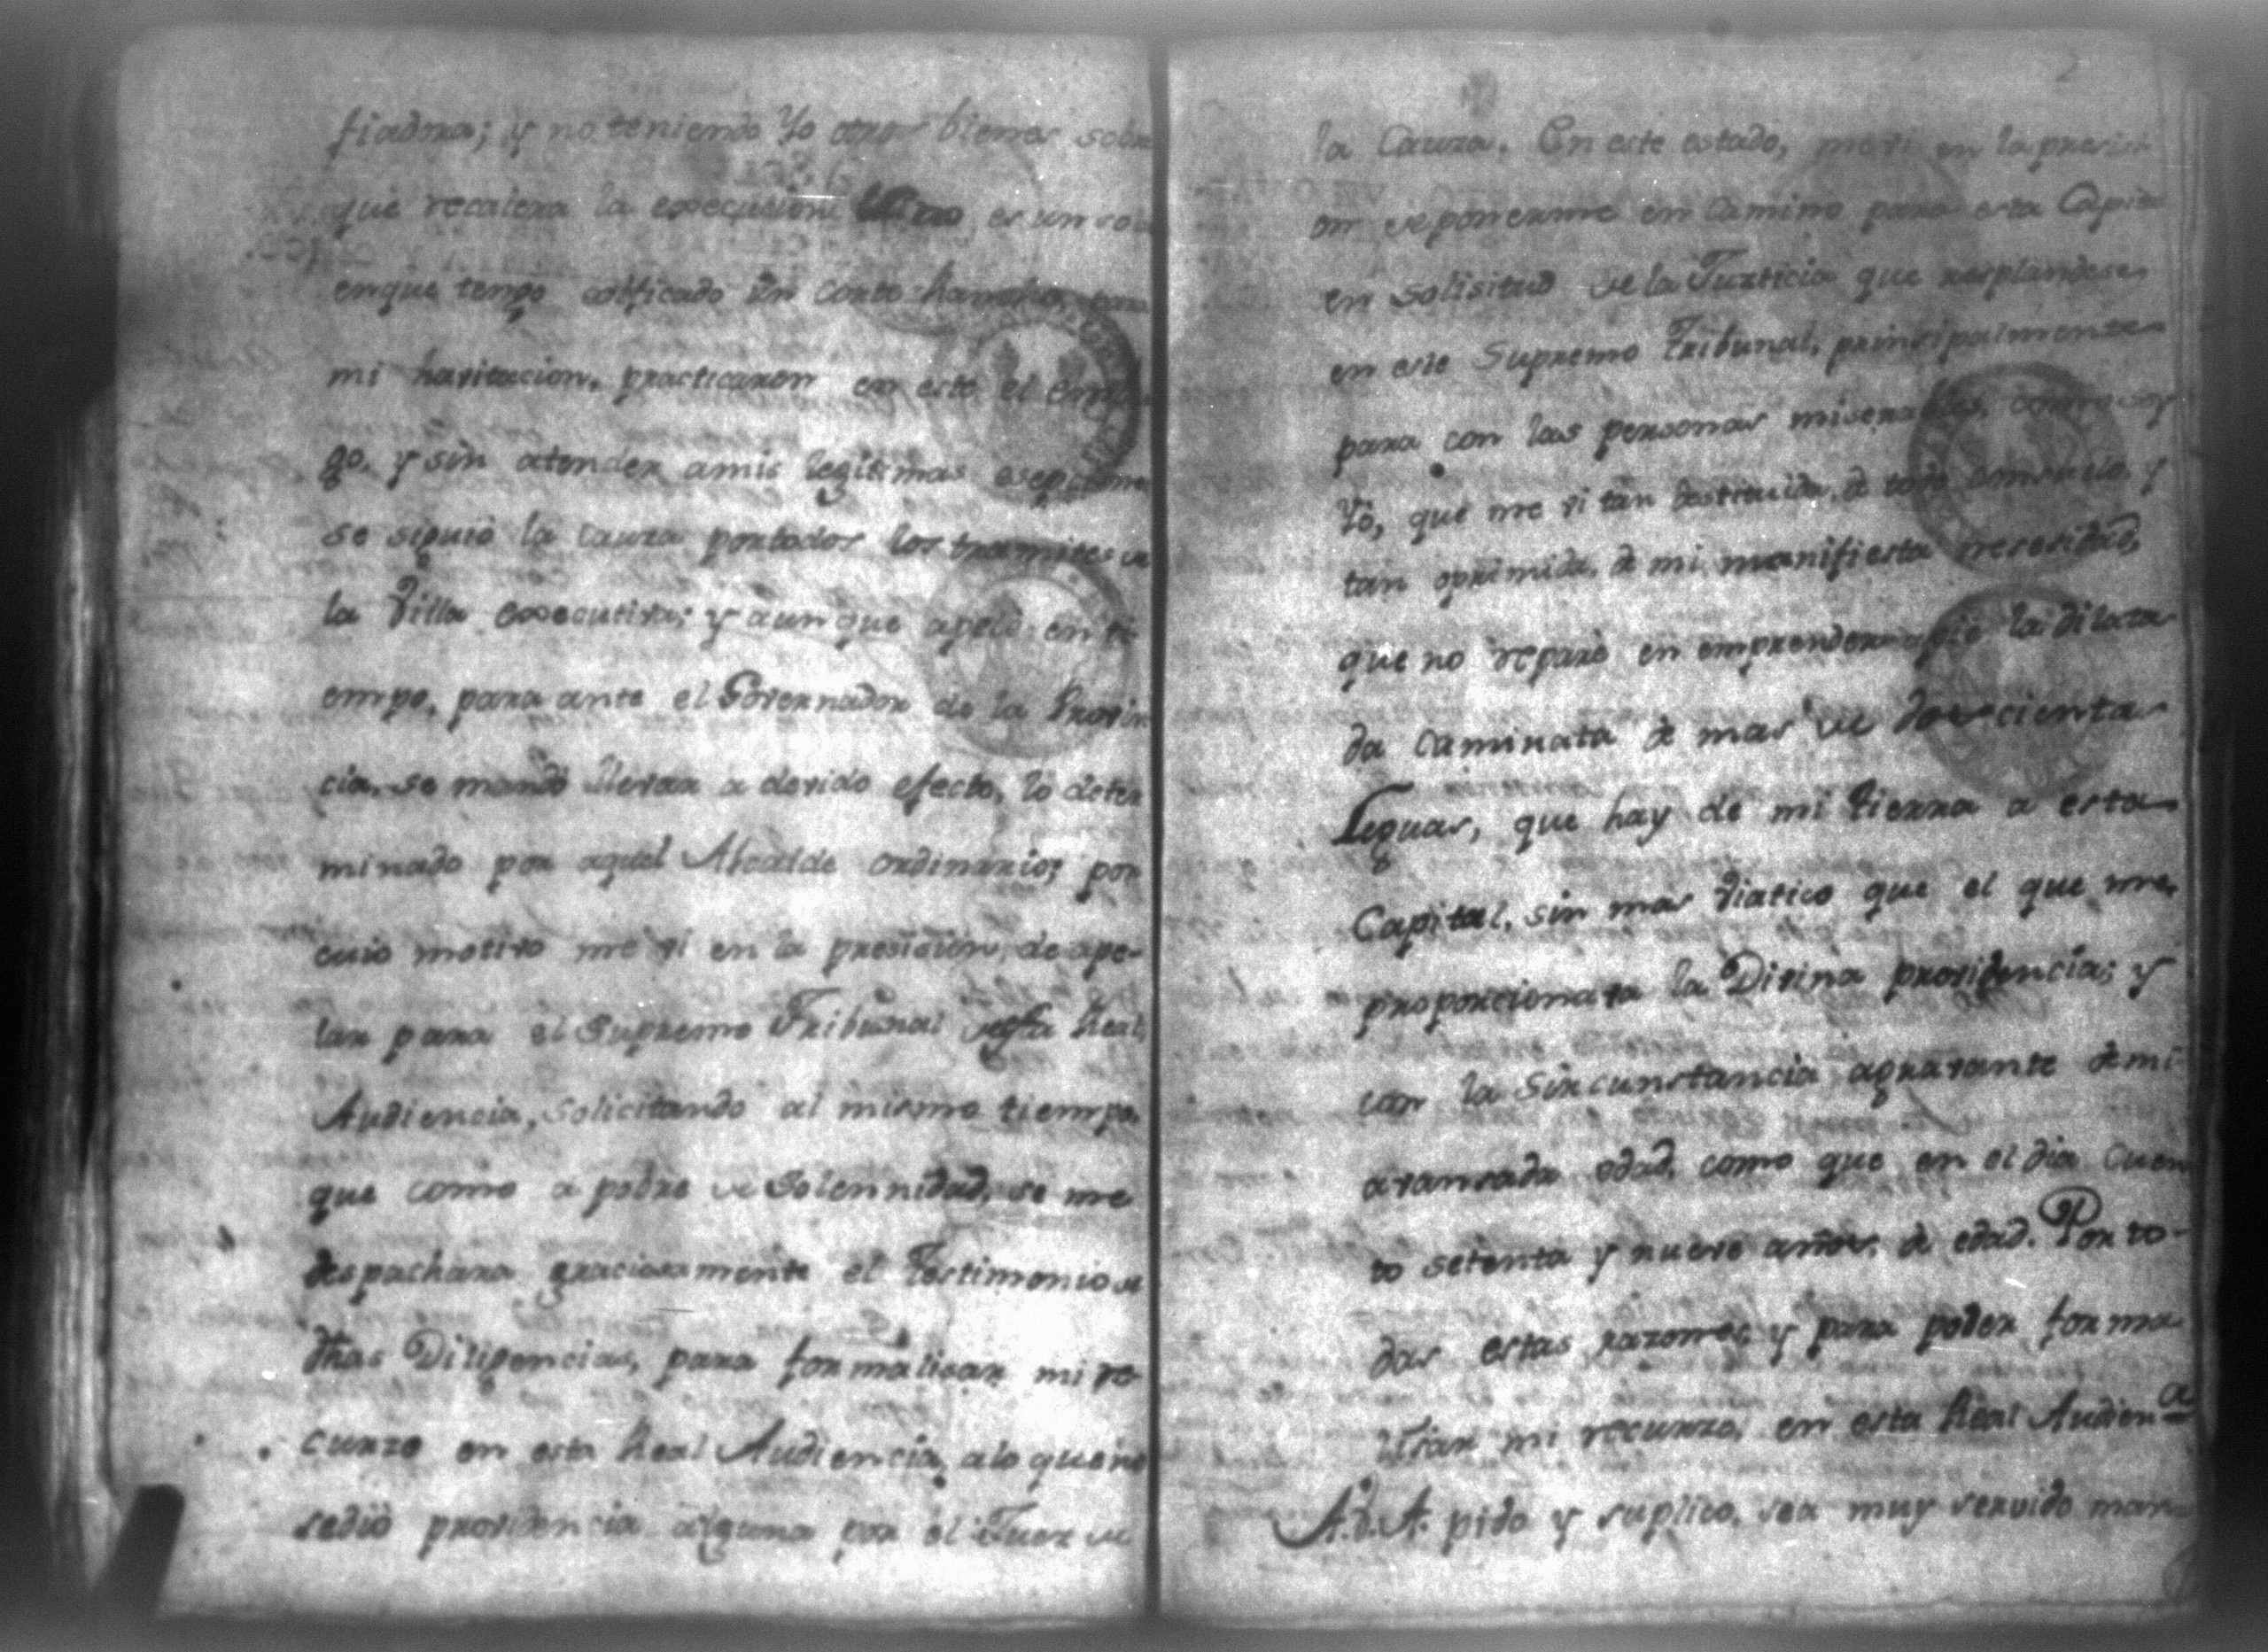 fiadora; y no teniendo Yo otros bienes sobre
que recaiera la execusion es un so
en que tengo edificado un corto rancho, para
mi havitacion, practicaron en este el emb
go, y sin atender a mis legitimas esepciones
se siguió la cauza por todos los tramites de
la Villa executiva; y aunque apelé en ti-
empo, para ante el Governador de la Provin
cia, se mandó llevar a devido efecto, lo deter
minado por aquel Alcalde ordinario; por
cuio motivo me vi en la presición, de ape-
lar para el Supremo Tribunal de esta Real
Audiencia, solicitando al mismo tiempo,
que como a pobre de Solennidad, se me
despachara graciosamente el Testimonio de
dhas Diligencias, para formalisar mi re-
curzo en esta Real Audiencia, a lo que no
se dió providencia alguna por el Juez de
2
la Cauza. En este estado, me vi en la presici
on de ponerme en camino para esta Capital
en solisitud de la Justicia que resplandese,
en este Supremo Tribunal, prinsipalmente
para con las personas miserables, como soy
Yó, que me vi tan destituida, de todo y
tan oprimida, de mi manifiesta nesesidad,
que no reparé en emprender a pie la dilata
da caminata de mas de doscientas
Leguas, que hay de mi tierra a esta
Capital, sin mas viatico que el que me
proporcionara la Divina providencia; y
con la sircunstancia agravante de mi
avansada edad, como que en el dia cuen
to setenta y nueve años, de edad. Por to-
das estas razones, y para poder forma
lisar mi recurzo, en esta Real Audien.ª
A.V.A. pido y suplico, sea muy servido man